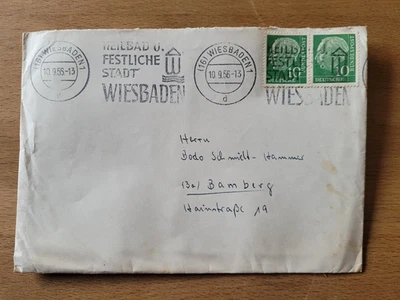 (16) WIESBADEN 1
10.9.56-13
d
HEILBAD U.
FESTLICHE
STADT
WIESBADEN
(16) WIESBADEN 1
10.9.56-13
d
HEILB
FESTL
STADT
WIESBADEN
10
10
Herrn
Bodo Schmidt-Hammer
Bamberg
Hainstraße 19